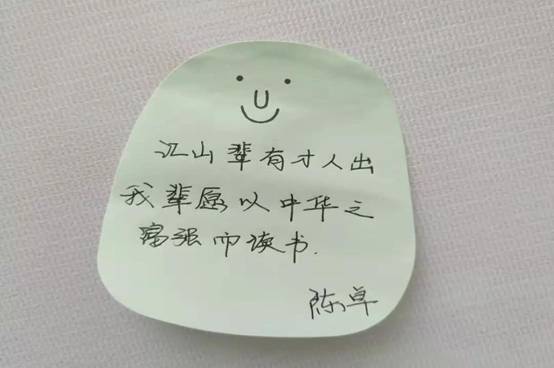 江山辈有才人出
我辈愿以中华之
富强而读书.
陈卓